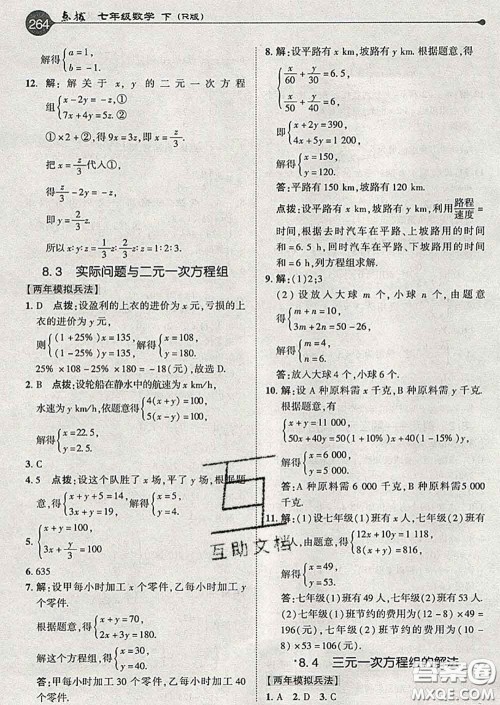 264 点拨 七年级数学 下(R版)
12. 解:解关于 x, y 的二元一次方程
组{x-2y=-z,①
7x+4y=5z.②
①×2+②,得 9x=3z,即 x=z/3.
把 x=z/3 代入①,
得 z/3-2y=-z,即 y=2/3 z.
所以 x:y:z=z/3:2/3 z:z=1:2:3.
8.3 实际问题与二元一次方程组
【两年模拟兵法】
1. D 点拨:设盈利的上衣的进价为 x 元,亏损的上
衣的进价为 y 元,
则{(1+25%)x=135,
(1-25%)y=135,解得{x=108,
y=180.
25%×108-25%×180=-18(元),故选 D.
2. B 点拨:设轮船在静水中的航速为 x km/h,
水速为 y km/h,依题意得{4(x+y)=100,
5(x-y)=100,
解得{x=22.5,
y=2.5.
3. C
4. 5 点拨:设这个队胜了 x 场,平了 y 场,根据题
意,得{x+y+5=14,
3x+y=19,解得{x=5,
y=4.
5. {x+y=100,
3x+y/3=100
6. 635
7. 解:设甲每小时加工 x 个零件,乙每小时加工 y
个零件.
根据题意,得{x+y=70,
2x-y=20,
解得{x=30,
y=40.
答:甲每小时加工 30 个零件,乙每小时加工 40
个零件.
8. 解:设平路有 x km,坡路有 y km. 根据题意,
得{x/60+y/30=6.5,
x/50+y/40=6,
即{x+2y=390,
4x+5y=1 200,
解得{x=150,
y=120.
答:平路有 150 km,坡路有 120 km.
点拨:设平路有 x km,坡路有 y km,利用路程/速度=
时间,根据去时汽车在平路、上坡路的用时的
和=6.5 h,回时汽车在平路、下坡路用时的
和=6 h,列方程组求解.
9. 解:(1)2;3
(2)设应放入大球 m 个,小球 n 个,由题意
得{
解得{m=4,
n=6.
答:放入大球 4 个,小球 6 个.
10. 解:设 A 种原料需 x 千克,B 种原料需 y 千克.
根据题意,得
{x+y=11 000,
50x+40y=50(1+10%)x+40(1-15%)y,
解得{x=6 000,
y=5 000.
答:A 种原料需 6 000 千克,B 种原料需 5 000
千克.
11. 解:(1)设七年级(1)班有 x 人,七年级(2)班有
y 人,由题意得{12x+10y=1 118,
8(x+y)=816,
解得{x=49,
y=53.
答:七年级(1)班有 49 人,七年级(2)班有 53 人.
(2)七年级(1)班节约的费用为(12-8)×49=
196(元),七年级(2)班节约的费用为(10-
8)×53=106(元).
*8.4 三元一次方程组的解法
【两年模拟兵法】
1. A 2. D 3. C
互助文档
答案圈
MXQE.COM